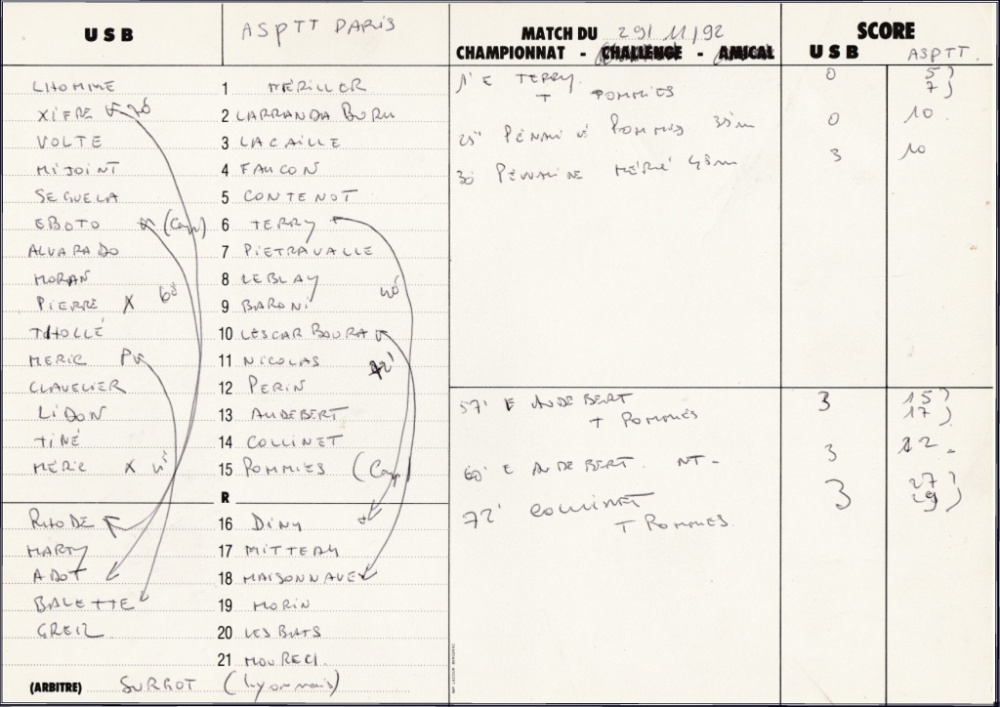 USB ASPTT PARIS MATCH DU 29/11/92 SCORE
CHAMPIONNAT - CHALLENGE - AMICAL USB ASPTT.
LHOMME 1 MÉRILLER
XIFRE 20 2 LARRANDA BURU
VOLTE 3 LACAILLE
MIJOINT 4 FAUCON
SEGUELA 5 CONTENOT
EBOTO (Cap) 6 TERRY
ALVARADO 7 PIETRAVALLE
MORAN 8 LEBLAY
PIERRE X 60 9 BARONI 40
THOLLÉ 10 LESCAR BOURA
MERIC P 11 NICOLAS 72'
CLAVELIER 12 PERIN
LIDON 13 AUDEBERT
TINÉ 14 COLLINET
MÉRIC X 15 POMMIES (Cap)
R
RHODE 16 DINY
MARTY 17 MITTERY
ADOT 18 MAISONNAVE
BALETTE 19 MORIN
GREIL 20 LES BATS
21 MOURECI.
(ARBITRE) SURROT (Lyonnais)
1' E TERRY. 0 5)
T POMMIES 7)
25" PÉNALITÉ POMMIES 35m 0 10
30 PÉNALITÉ MÉRIC 45m 3 10
57' E AUDEBERT 3 15)
T POMMIES 17)
60' E AUDEBERT. NT - 3 22 -
72' COLLINET 3 27)
T POMMIES. 29)